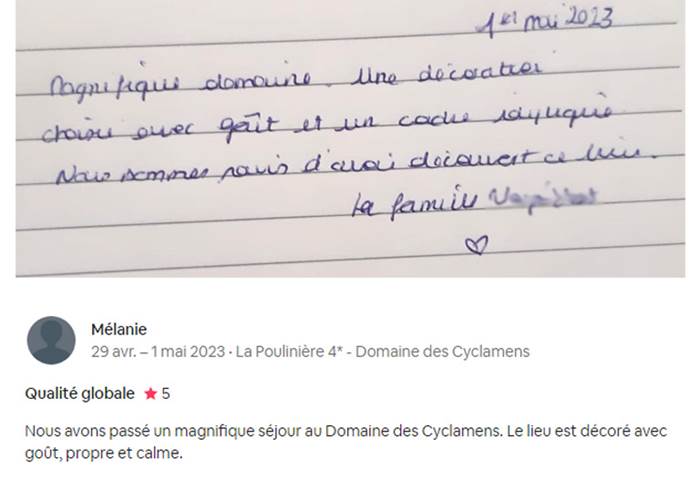 1er mai 2023
Magnifique domaine. Une décoration
choisie avec goût et un cadre idyllique
Nous sommes ravis d'avoir découvert ce lieu.
La famille
♡
Mélanie
29 avr. – 1 mai 2023 · La Poulinière 4* - Domaine des Cyclamens
Qualité globale ★ 5
Nous avons passé un magnifique séjour au Domaine des Cyclamens. Le lieu est décoré avec
goût, propre et calme.